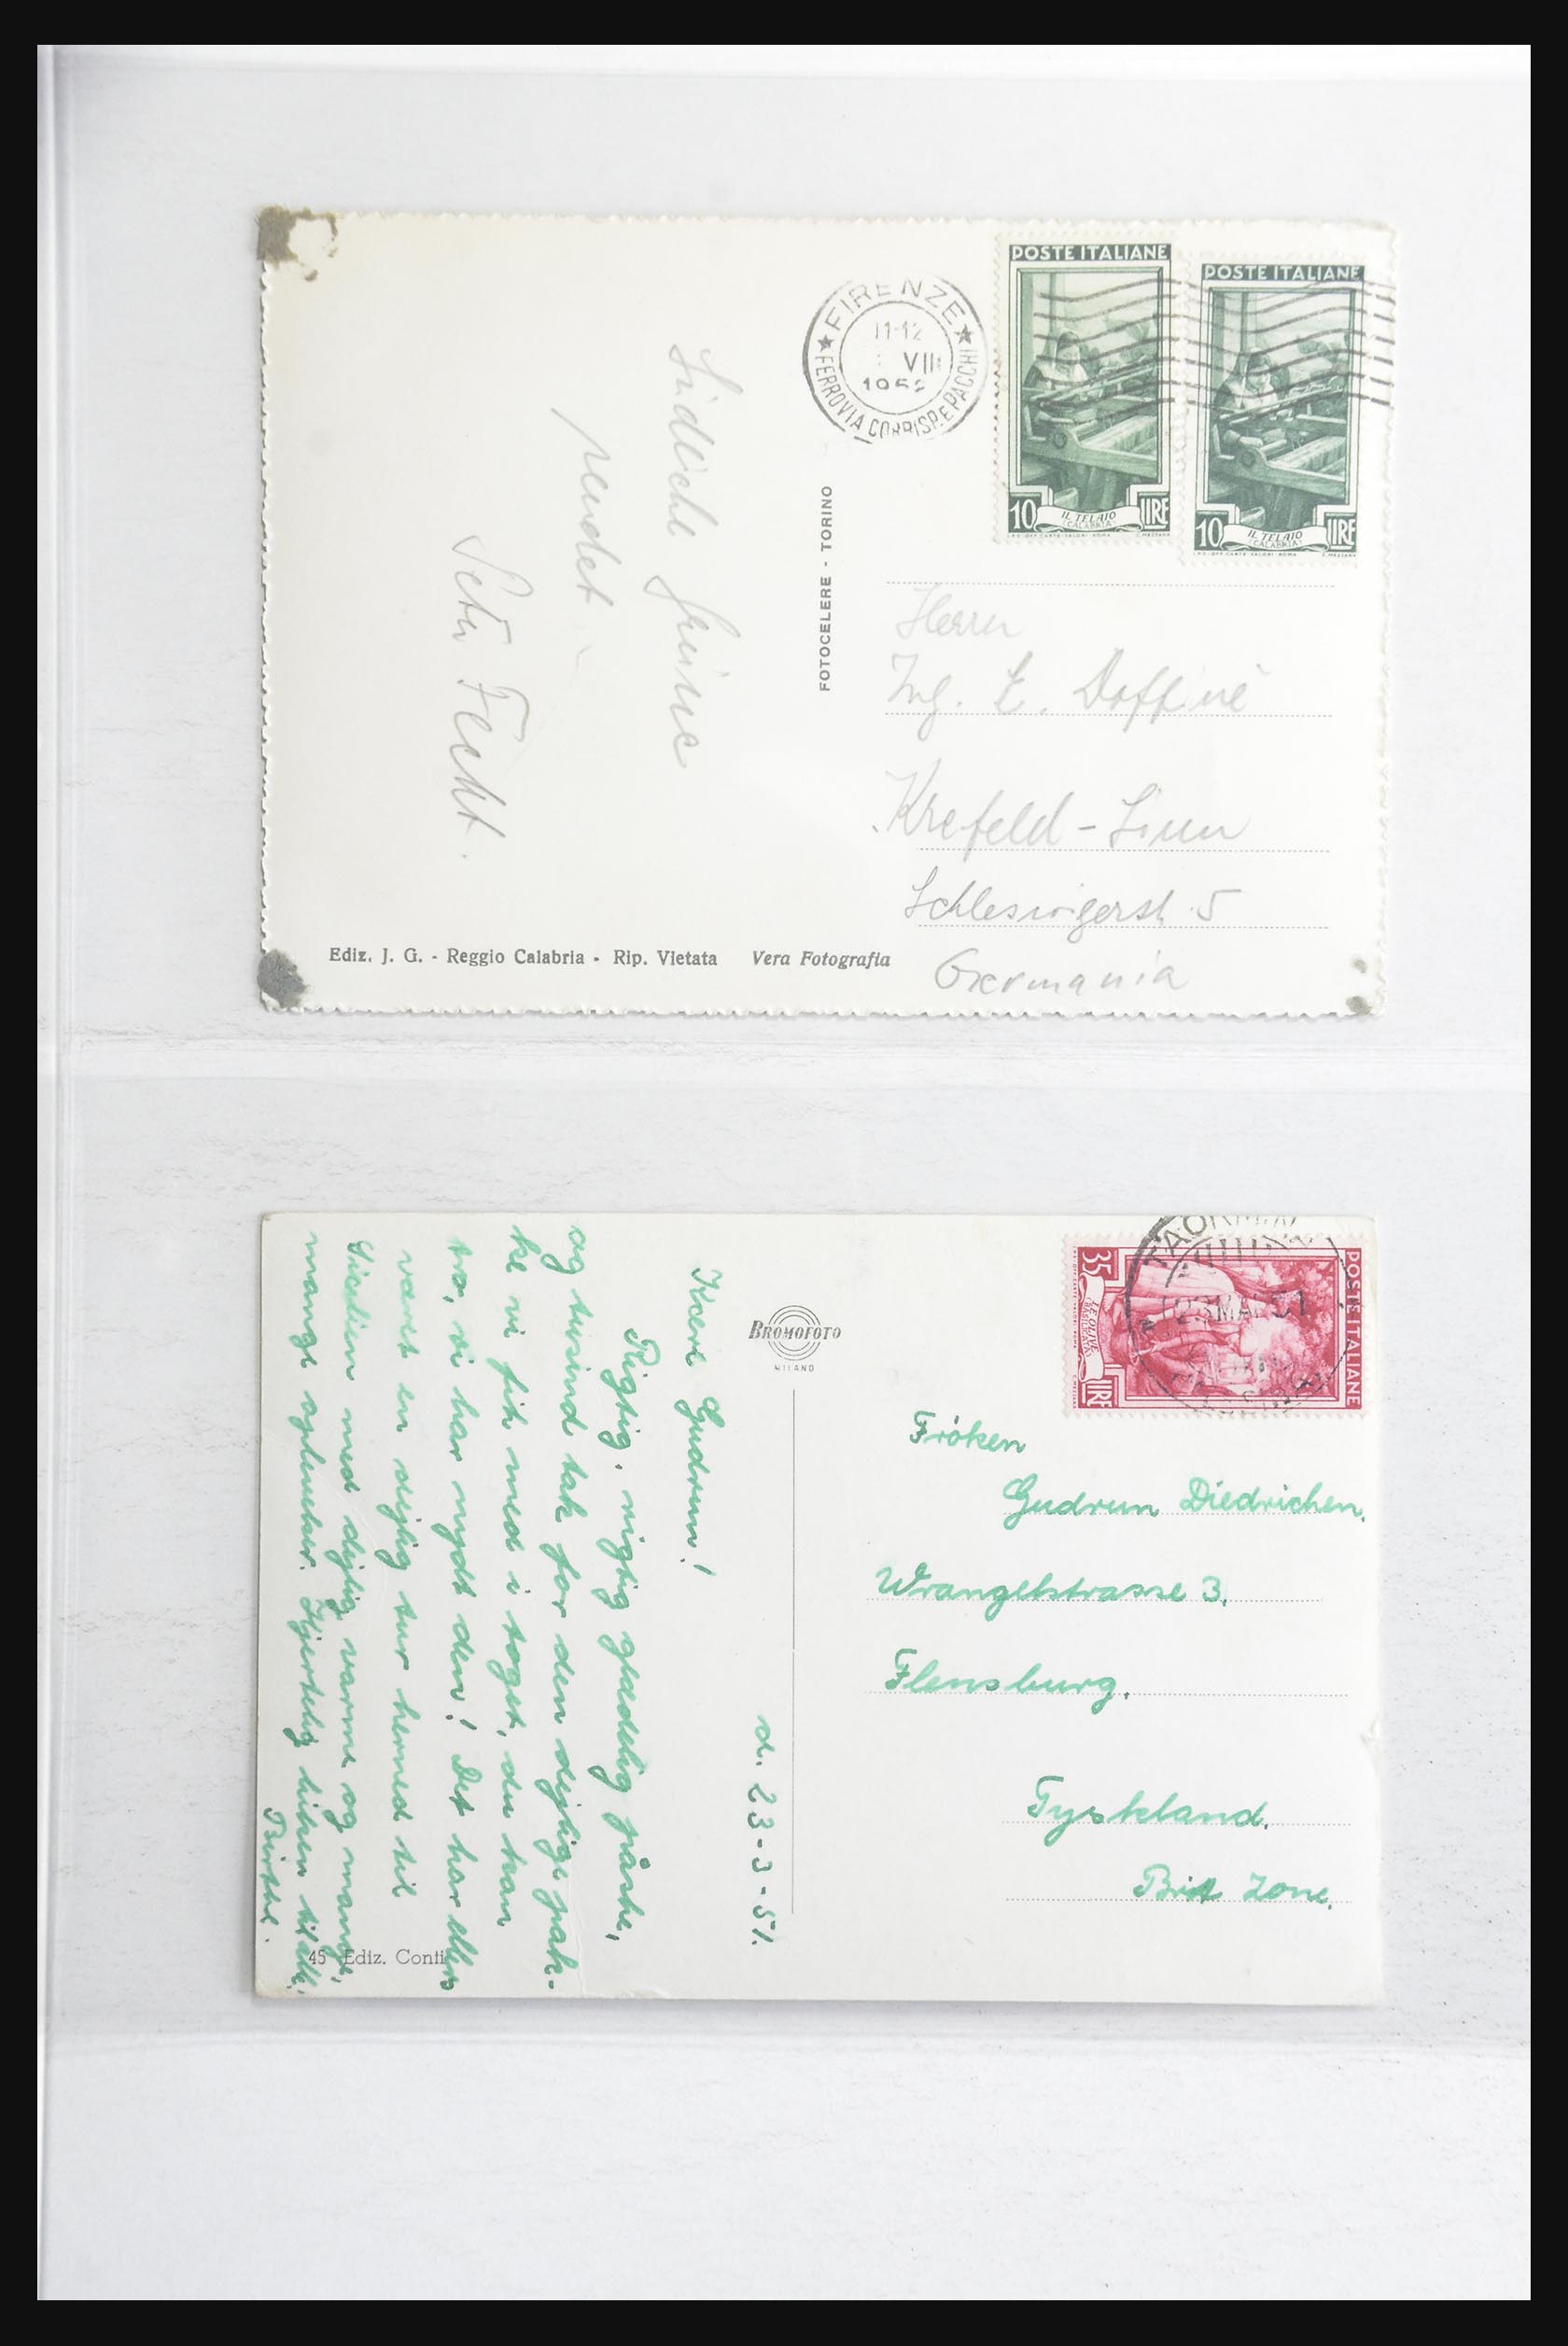 POSTE ITALIANE
10 LIRE
IL TELAIO
(CALABRIA)
POSTE ITALIANE
10 LIRE
IL TELAIO
(CALABRIA)
FIRENZE
11-12
VIII
195
FERROVIA CORRISP. E PACCHI
Südliche Grüsse
sendet
Fecht.
FOTOCELERE - TORINO
Herrn
Ing. E. Daffiné
Krefeld - Linn
Schleswigerst. 5
Germania
Ediz. J. G. - Reggio Calabria - Rip. Vietata Vera Fotografia
POSTE ITALIANE
35 LIRE
LE OLIVE
(BASILICATA)
TAORMINA
23 MAR 51
BROMOFOTO
MILANO
d. 23-3-51.
Kære Gudrun!
Rigtig, rigtig glædelig påske,
og tusind tak for den dejlige pak-
ke vi fik med i toget, du kan
tro, vi har nydt den! Det har ellers
været en dejlig tur herned til
Sicilien med dejlig varme og mange,
mange oplevelser. Hjertelig hilsen til alle,
Birthe.
45 Ediz. Conti
Fröken
Gudrun Diedrichen.
Wrangelstrasse 3.
Flensburg.
Tyskland.
Brit Zone.